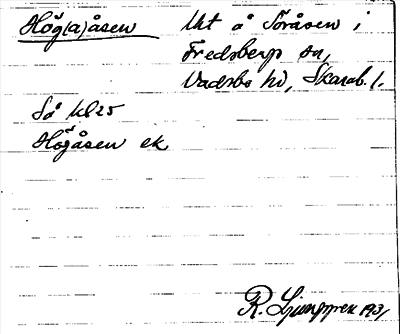 Hög(a)åsen Utt å Toråsen i
Fredsberg sn,
Vadsbo hd, Skarab. l.
Så U 825
Högåsen ek
R. Ljunggren 1931